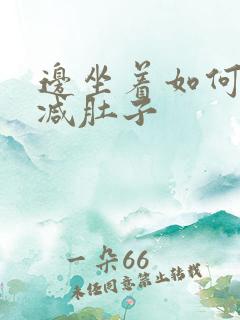 邊坐着如何
减肚子
一朵66
未经同意禁止转载